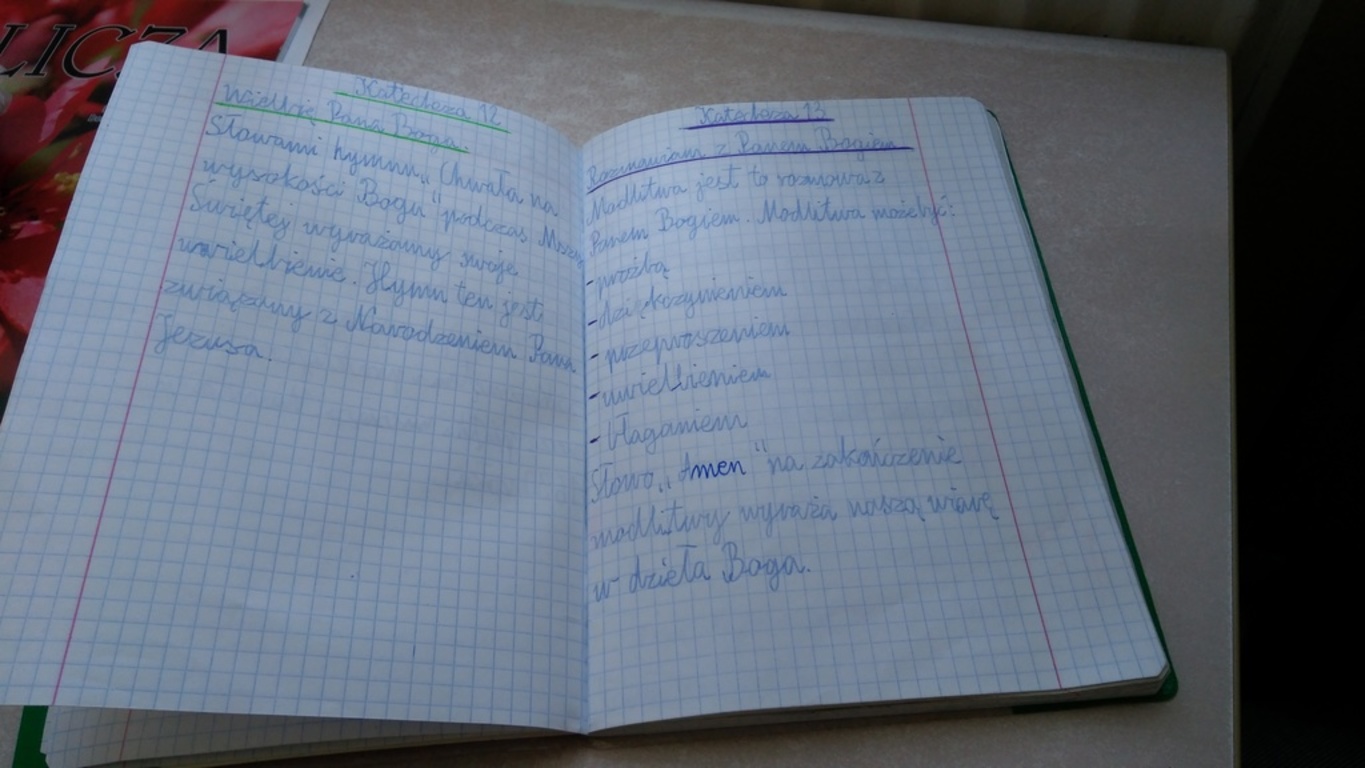 LICZA
Katecheza 12
Wielbię Pana Boga.
Słowami hymnu „Chwała na
wysokości Bogu" podczas Mszy
Świętej wyrażamy swoje
uwielbienie. Hymn ten jest
związany z Narodzeniem Pana
Jezusa.
Katecheza 13
Rozmawiam z Panem Bogiem
Modlitwa jest to rozmowa z
Panem Bogiem. Modlitwa może być:
- prośbą
- dziękczynieniem
- przeproszeniem
- uwielbieniem
- błaganiem
Słowo „Amen" na zakończenie
modlitwy wyraża naszą wiarę
w dzieła Boga.